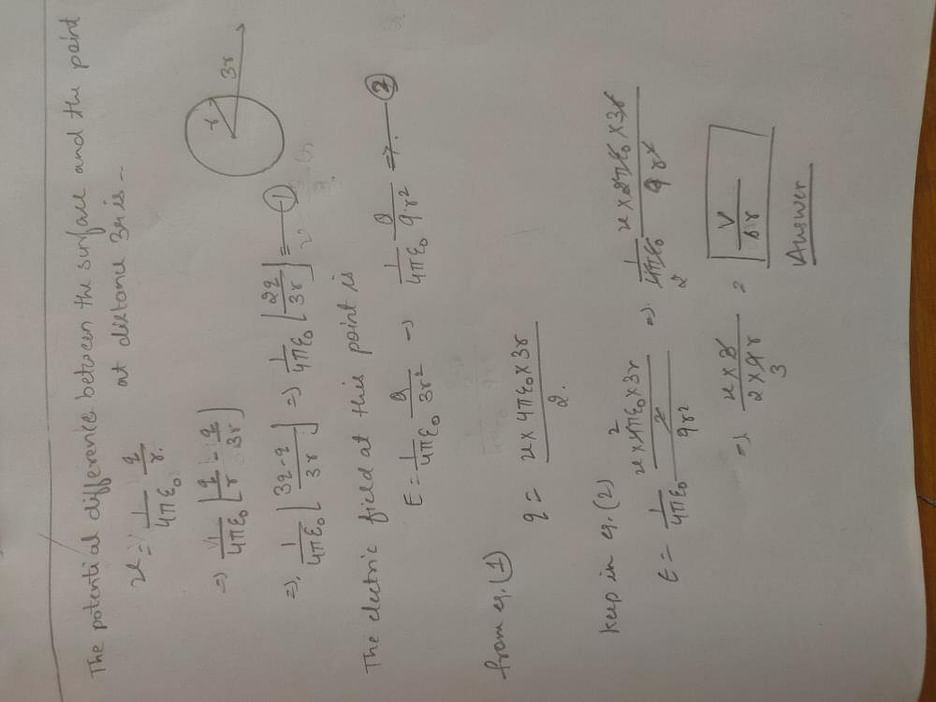 The potential difference between the surface and the point
at distance 3r is -
v = 1/4πε₀ q/r.
r 3r
=> 1/4πε₀ [q/r - q/3r]
=>, 1/4πε₀ [3q-q/3r] => 1/4πε₀ [2q/3r] = v — ①
The electric field at this point is
E = 1/4πε₀ q/3r² → 1/4πε₀ q/9r² => . — ②
from eq. (1) q = v x 4πε₀ x 3r / 2.
Keep in eq. (2)
E = 1/4πε₀ v x 4πε₀ x 3r / 2 / 9r² => 1/4πε₀ v x 2πε₀ x 3r / 9r²
=> v x 3 / 2 x 9r 3 = V/6r
Answer